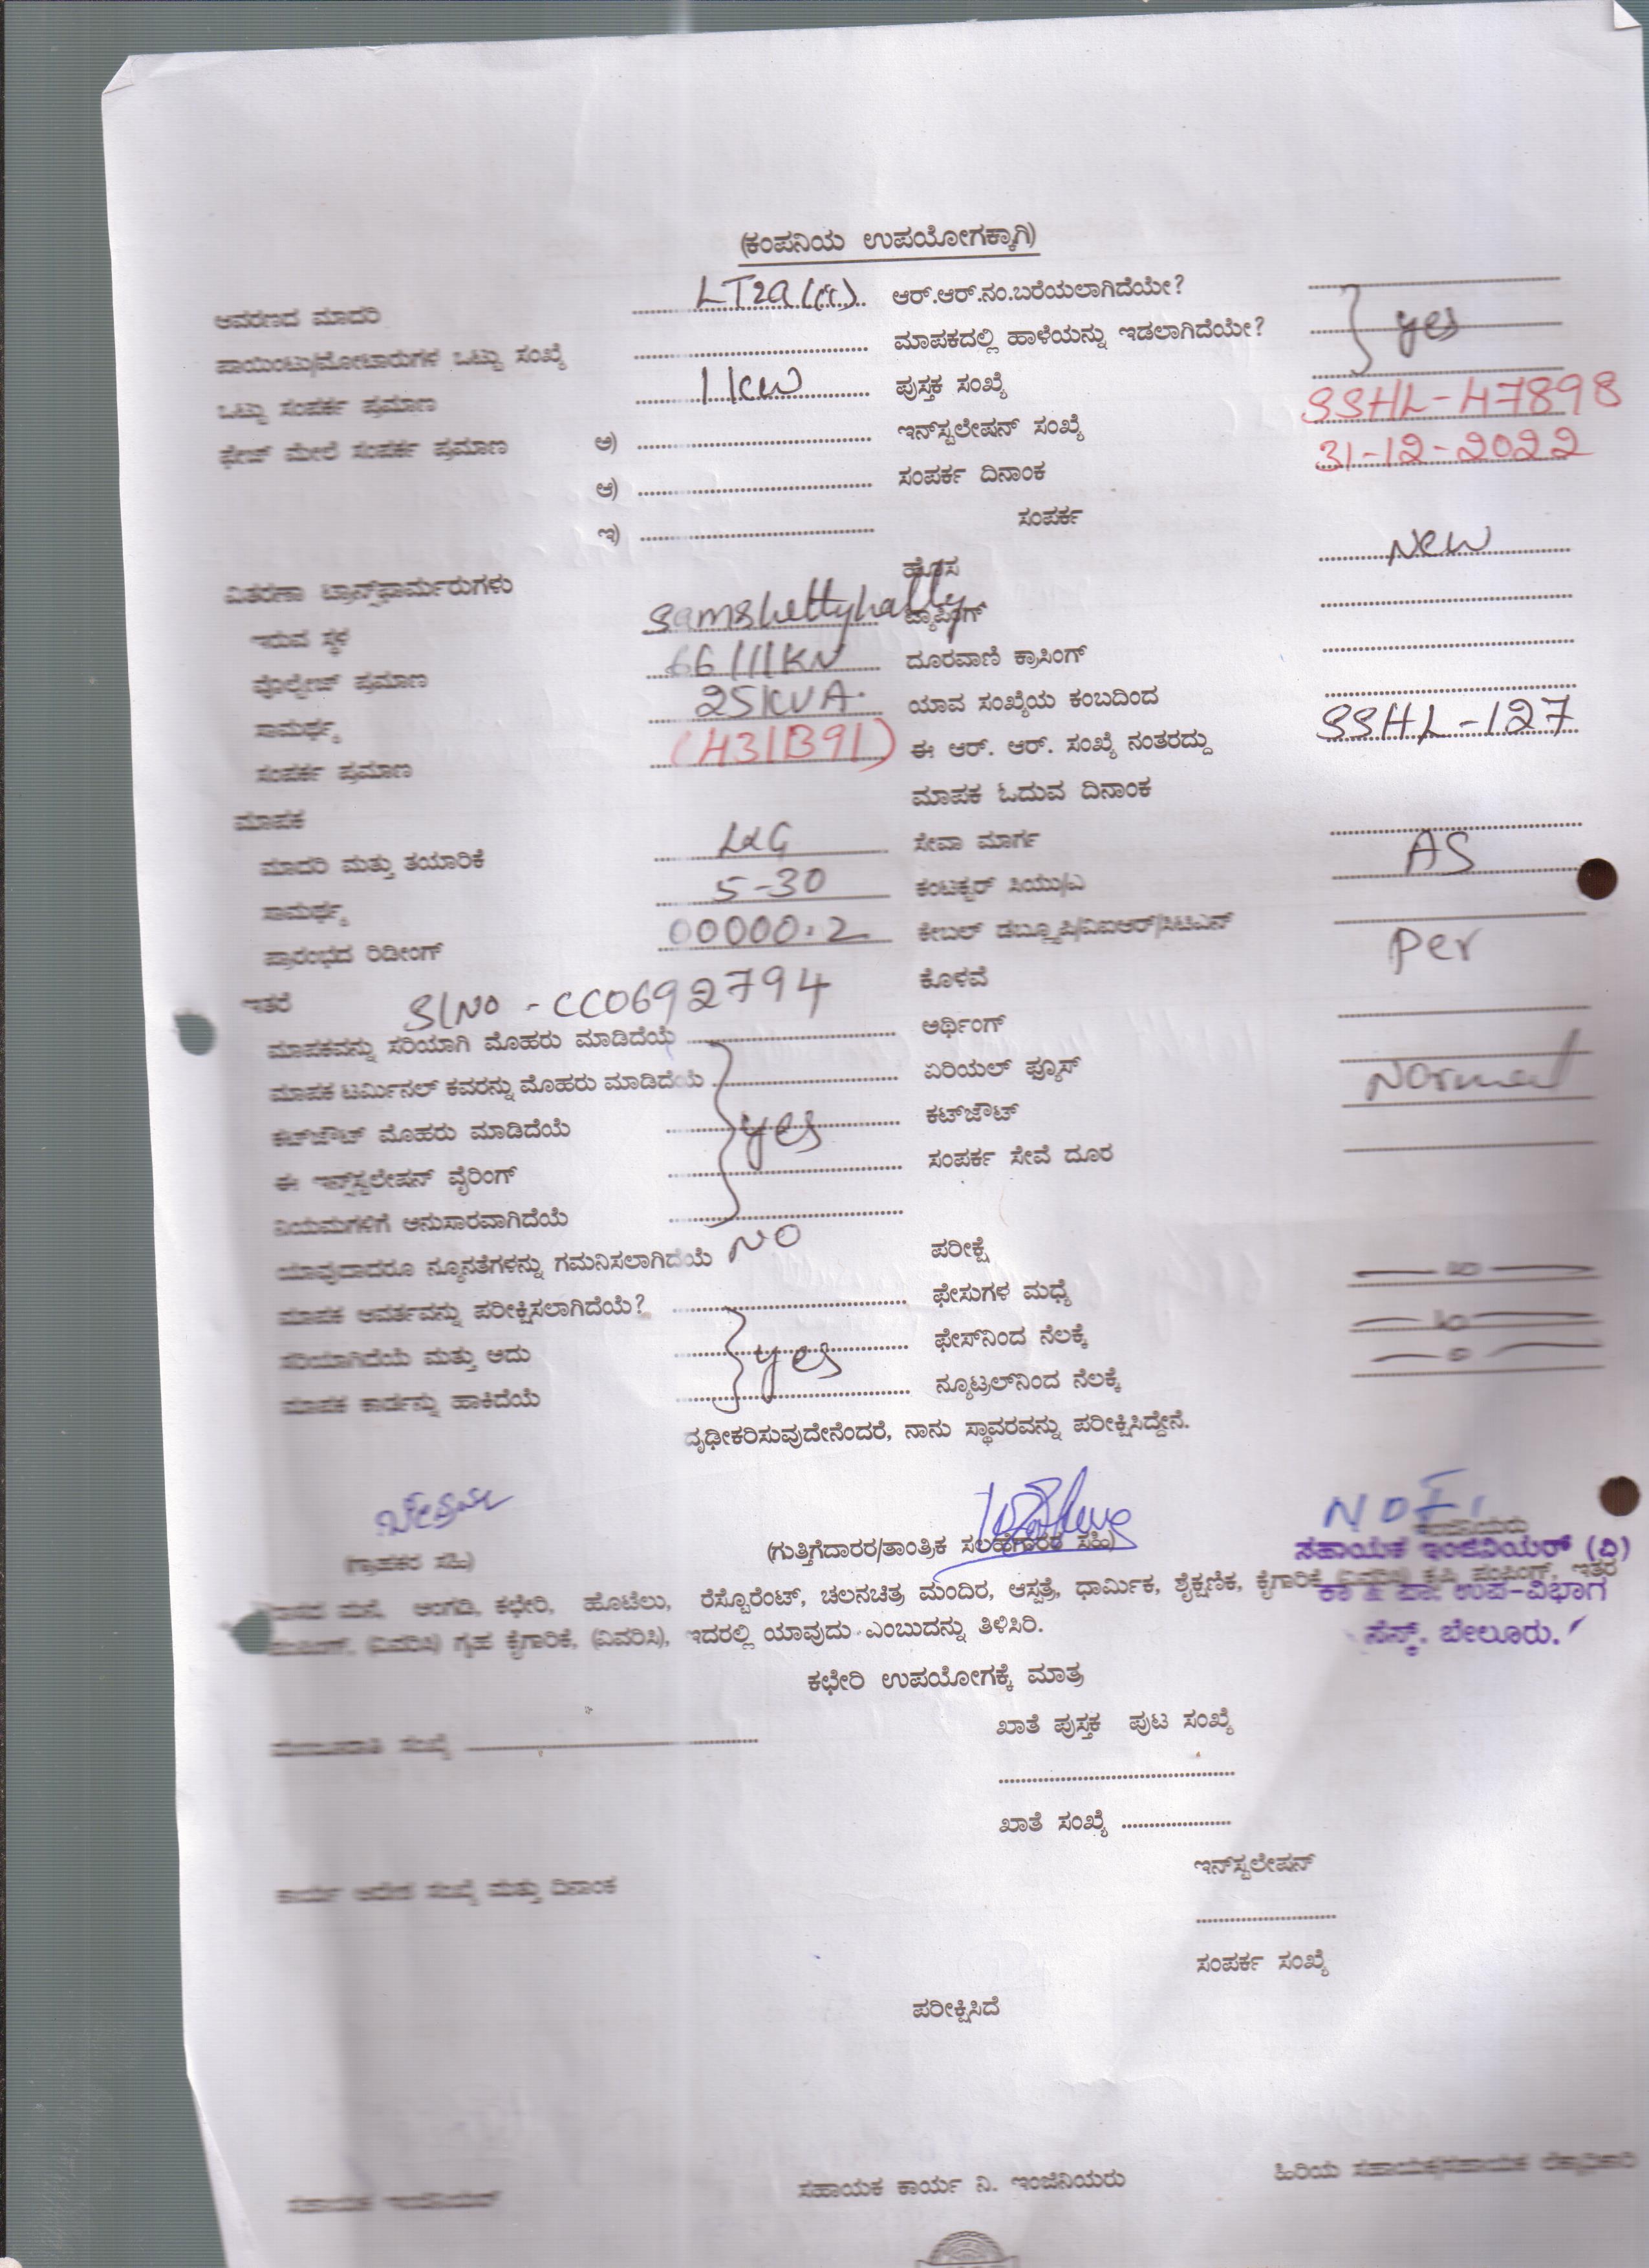 (ಕಂಪನಿಯ ಉಪಯೋಗಕ್ಕಾಗಿ)
ಆವರಣದ ಮಾದರಿ LT2a(ii) ಆರ್.ಆರ್.ನಂ.ಬರೆಯಲಾಗಿದೆಯೇ?
ಪಾಯಿಂಟು/ಮೋಟಾರುಗಳ ಒಟ್ಟು ಸಂಖ್ಯೆ ಮಾಪಕದಲ್ಲಿ ಹಾಳೆಯನ್ನು ಇಡಲಾಗಿದೆಯೇ? yes
ಒಟ್ಟು ಸಂಪರ್ಕ ಪ್ರಮಾಣ 1kw ಪುಸ್ತಕ ಸಂಖ್ಯೆ
ಫೇಜ್ ಮೇಲೆ ಸಂಪರ್ಕ ಪ್ರಮಾಣ ಅ) ಇನ್‌ಸ್ಟಲೇಷನ್ ಸಂಖ್ಯೆ SSHL-47898
ಆ) ಸಂಪರ್ಕ ದಿನಾಂಕ 31-12-2022
ಇ) ಸಂಪರ್ಕ
ವಿತರಣಾ ಟ್ರಾನ್ಸ್‌ಫಾರ್ಮರುಗಳು ಹೊಸ New
ಇರುವ ಸ್ಥಳ Samshettyhally ಟ್ಯಾಪಿಂಗ್
ವೊಲ್ಟೇಜ್ ಪ್ರಮಾಣ 66/11KV ದೂರವಾಣಿ ಕ್ರಾಸಿಂಗ್
ಸಾಮರ್ಥ್ಯ 25KVA ಯಾವ ಸಂಖ್ಯೆಯ ಕಂಬದಿಂದ
ಸಂಪರ್ಕ ಪ್ರಮಾಣ (431B91) ಈ ಆರ್. ಆರ್. ಸಂಖ್ಯೆ ನಂತರದ್ದು SSHL-127
ಮಾಪಕ ಮಾಪಕ ಓದುವ ದಿನಾಂಕ
ಮಾದರಿ ಮತ್ತು ತಯಾರಿಕೆ L&G ಸೇವಾ ಮಾರ್ಗ
ಸಾಮರ್ಥ್ಯ 5-30 ಕಂಟಕ್ಟರ್ ಸಿಯು/ಎ AS
ಪ್ರಾರಂಭದ ರಿಡೀಂಗ್ 00000.2 ಕೇಬಲ್ ಡಬ್ಲ್ಯೂಪಿ/ವಿಐಆರ್/ಸಿಟಿಎನ್
ಇತರೆ Sl No - CC0692794 ಕೊಳವೆ Per
ಮಾಪಕವನ್ನು ಸರಿಯಾಗಿ ಮೊಹರು ಮಾಡಿದೆಯೆ ಅರ್ಥಿಂಗ್
ಮಾಪಕ ಟರ್ಮಿನಲ್ ಕವರನ್ನು ಮೊಹರು ಮಾಡಿದೆಯೆ ಏರಿಯಲ್ ಫ್ಯೂಸ್ Normal
ಕಟ್‌ಔಟ್ ಮೊಹರು ಮಾಡಿದೆಯೆ yes ಕಟ್‌ಔಟ್
ಈ ಇನ್ಸ್‌ಟಲೇಷನ್ ವೈರಿಂಗ್ ಸಂಪರ್ಕ ಸೇವೆ ದೂರ
ನಿಯಮಗಳಿಗೆ ಅನುಸಾರವಾಗಿದೆಯೆ
ಯಾವುದಾದರೂ ನ್ಯೂನತೆಗಳನ್ನು ಗಮನಿಸಲಾಗಿದೆಯೆ NO ಪರೀಕ್ಷೆ
ಮಾಪಕ ಆವರ್ತವನ್ನು ಪರೀಕ್ಷಿಸಲಾಗಿದೆಯೆ? ಫೇಸುಗಳ ಮಧ್ಯೆ
ಸರಿಯಾಗಿದೆಯೆ ಮತ್ತು ಅದು yes ಫೇಸ್‌ನಿಂದ ನೆಲಕ್ಕೆ
ಮಾಪಕ ಕಾರ್ಡನ್ನು ಹಾಕಿದೆಯೆ ನ್ಯೂಟ್ರಲ್‌ನಿಂದ ನೆಲಕ್ಕೆ
ದೃಢೀಕರಿಸುವುದೇನೆಂದರೆ, ನಾನು ಸ್ಥಾವರವನ್ನು ಪರೀಕ್ಷಿಸಿದ್ದೇನೆ.
(ಗ್ರಾಹಕರ ಸಹಿ) (ಗುತ್ತಿಗೆದಾರರ/ತಾಂತ್ರಿಕ ಸಲಹೆಗಾರರ ಸಹಿ)
ಸಹಾಯಕ ಇಂಜಿನಿಯರ್ (ವಿ)
ಕಾ & ಪಾ. ಉಪ-ವಿಭಾಗ
ಸೆಸ್ಕ್, ಬೇಲೂರು.
ವಾಸದ ಮನೆ, ಅಂಗಡಿ, ಕಛೇರಿ, ಹೊಟೆಲು, ರೆಸ್ಟೋರೆಂಟ್, ಚಲನಚಿತ್ರ ಮಂದಿರ, ಆಸ್ಪತ್ರೆ, ಧಾರ್ಮಿಕ, ಶೈಕ್ಷಣಿಕ, ಕೈಗಾರಿಕೆ (ವಿವರಿಸಿ) ಕೃಷಿ ಪಂಪಿಂಗ್, ಇತರ
ಪಂಪಿಂಗ್, (ವಿವರಿಸಿ) ಗೃಹ ಕೈಗಾರಿಕೆ, (ವಿವರಿಸಿ), ಇದರಲ್ಲಿ ಯಾವುದು ಎಂಬುದನ್ನು ತಿಳಿಸಿರಿ.
ಕಛೇರಿ ಉಪಯೋಗಕ್ಕೆ ಮಾತ್ರ
ಖಾತೆ ಪುಸ್ತಕ ಪುಟ ಸಂಖ್ಯೆ
ಮಂಜೂರಾತಿ ಸಂಖ್ಯೆ
ಖಾತೆ ಸಂಖ್ಯೆ
ಇನ್‌ಸ್ಟಲೇಷನ್
ಕಾರ್ಯ ಆದೇಶ ಸಂಖ್ಯೆ ಮತ್ತು ದಿನಾಂಕ
ಸಂಪರ್ಕ ಸಂಖ್ಯೆ
ಪರೀಕ್ಷಿಸಿದೆ
ಸಹಾಯಕ ಇಂಜಿನಿಯರ್ ಸಹಾಯಕ ಕಾರ್ಯ ನಿ. ಇಂಜಿನಿಯರು ಹಿರಿಯ ಸಹಾಯಕ/ಸಹಾಯಕ ಲೆಕ್ಕಾಧಿಕಾರಿ